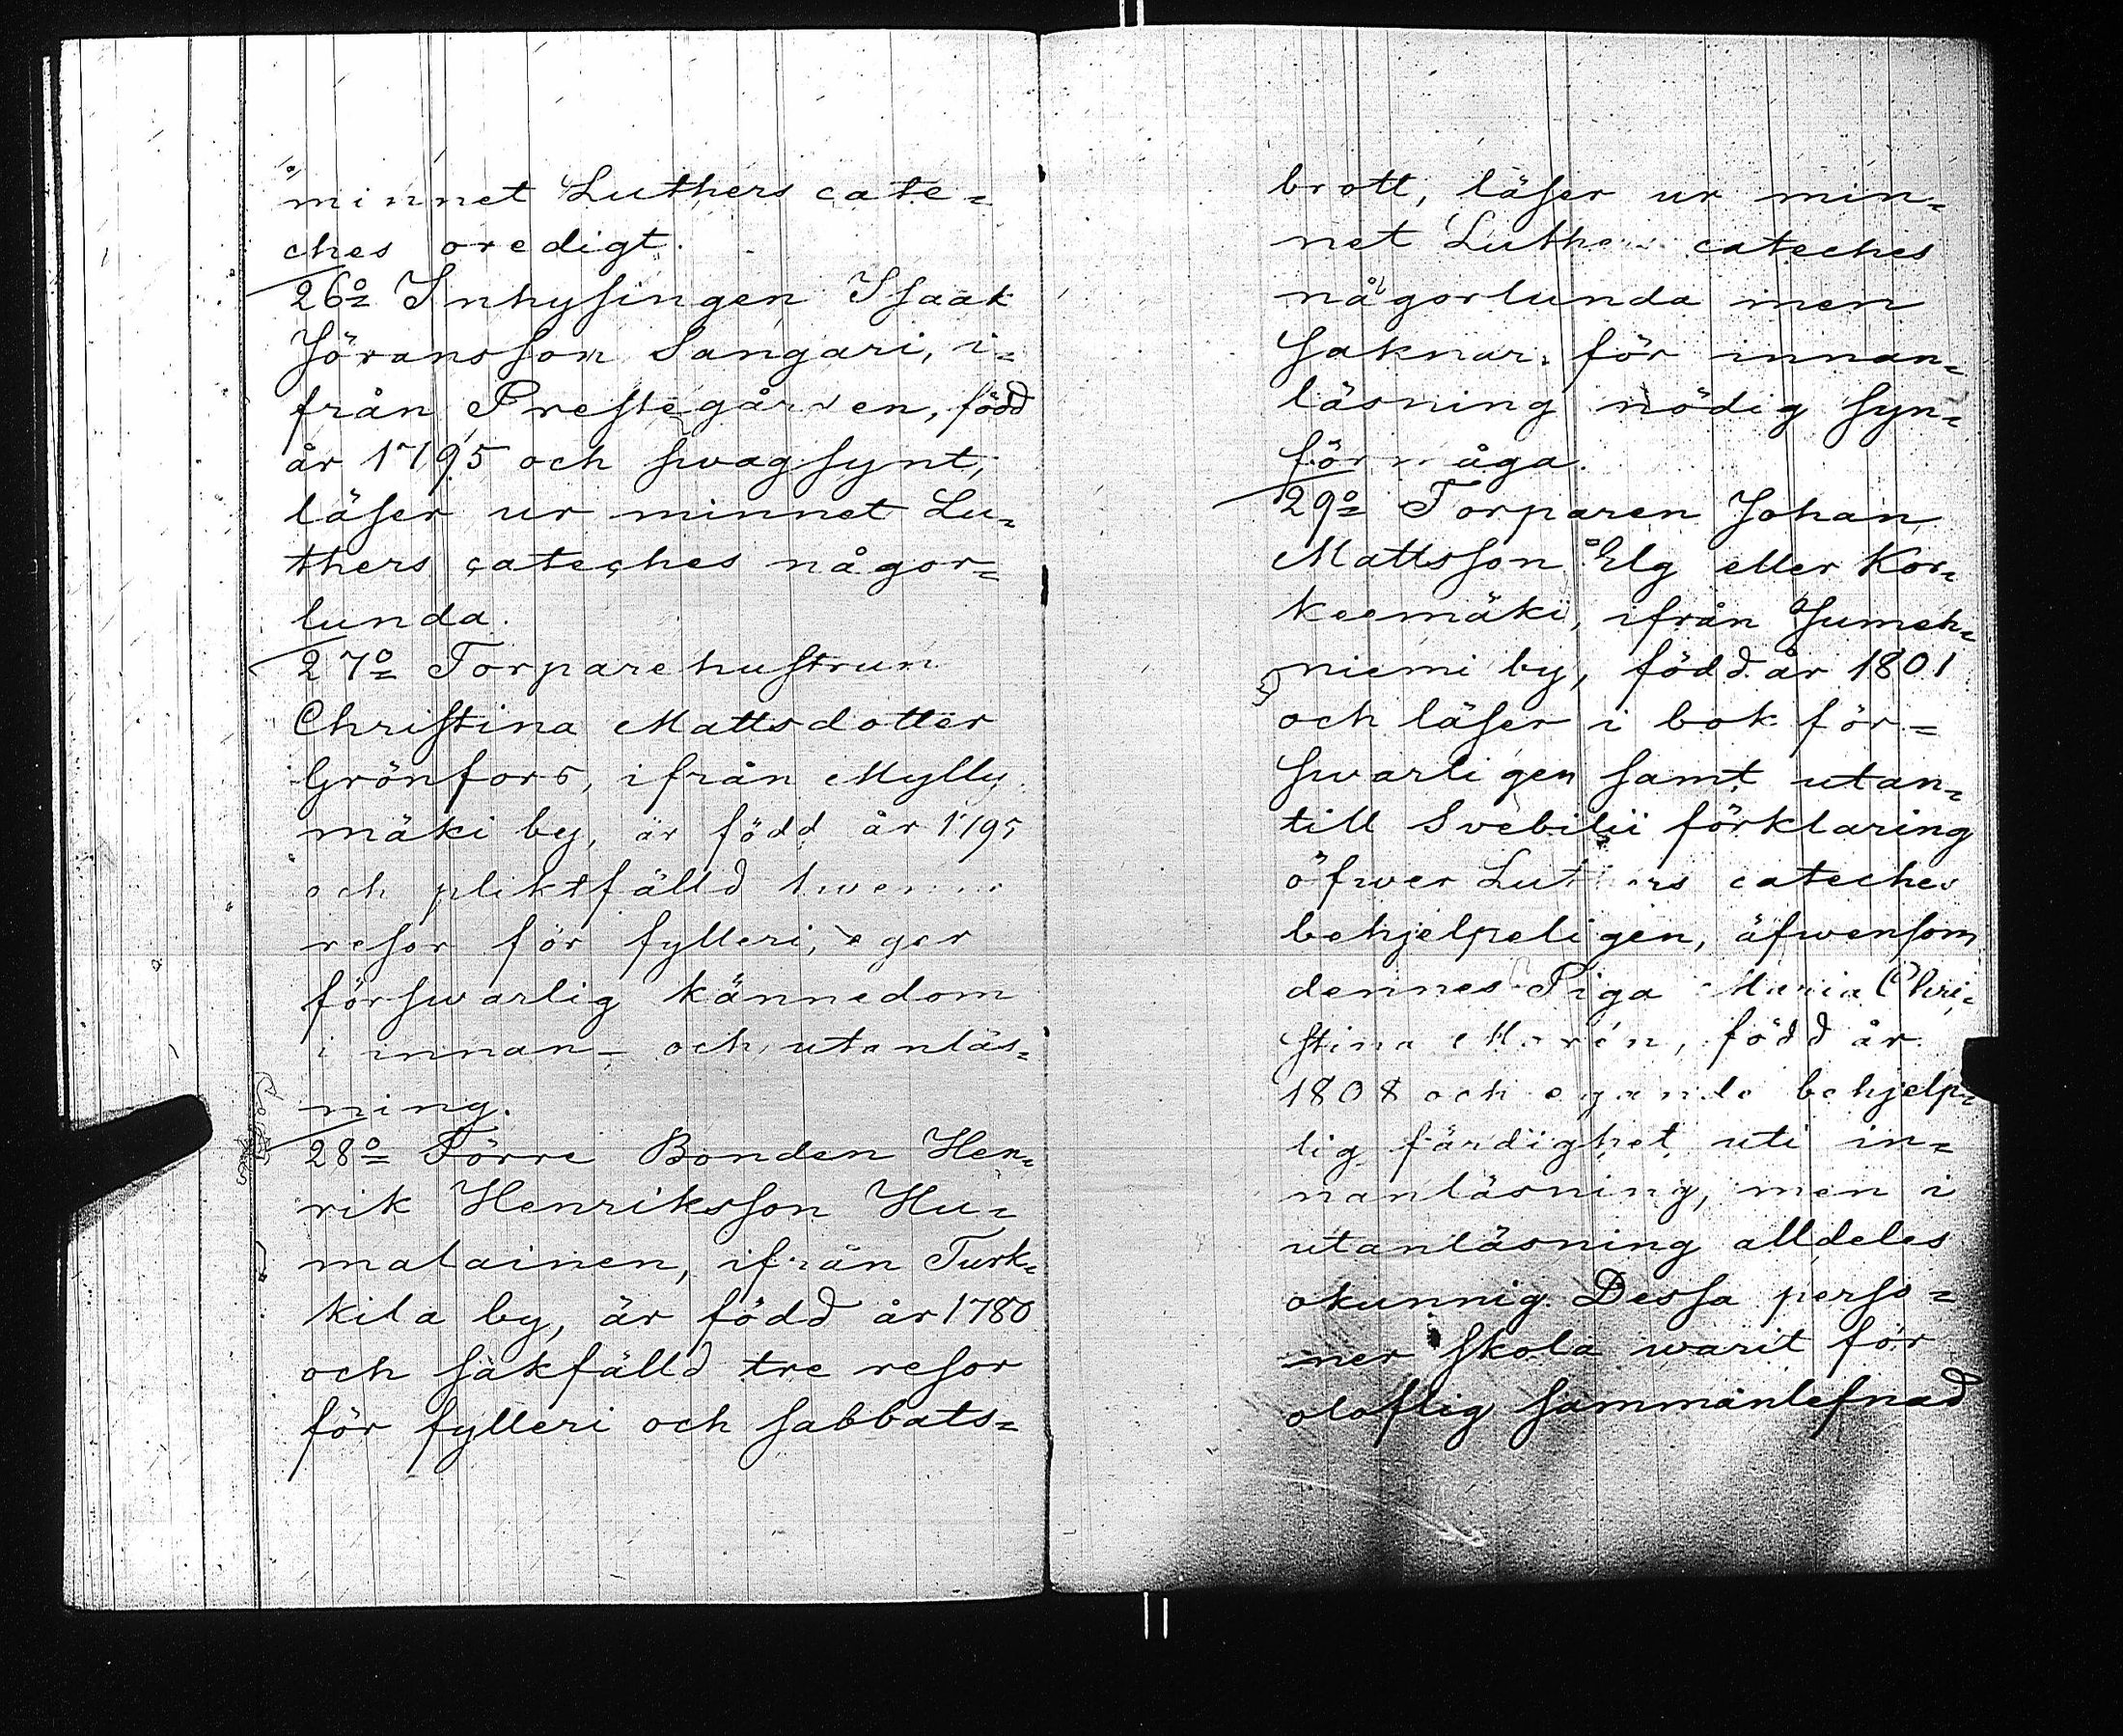 minnet Luthers cate=
ches oredigt.
26o Inhysingen Isaak
Jöransson Sangari, i=
från Prestegården, född
år 1795 och swagsynt,
läser ur minnet Lu=
thers cateches någor=
lunda.
27o Torparehustrun
Christina Mattsdotter
Grönfors, ifrån Mylly=
mäki by, är född år 1795
och pliktfälld twenne
resor för fylleri, eger
förswarlig kännedom
i innan- och utanläs=
ning.
28o Förre Bonden Hen=
rik Henriksson Hu=
malainen, ifrån Turk=
kila by, är född år 1780
och sakfälld tre resor
för fylleri och sabbats=
brott, läser ur min=
net Luthers cateches
någorlunda men
saknar för innan=
läsning nödig syn=
förmåga.
29o Torparen Johan
Mattsson Elg eller Kor=
keemäki, ifrån
niemi by, född år 1801
och läser i bok för=
swarligen samt utan=
till Svebilii förklaring
öfwer Luthers cateches
behjelpeligen, äfwensom
dennes Piga Maria Chri=
stina Morén, född år
1808 och egande behjelp=
lig färdighet uti in=
nanläsning, men i
utanläsning alldeles
okunnig. Dessa perso=
ner skola warit för
oloflig sammanlefnad